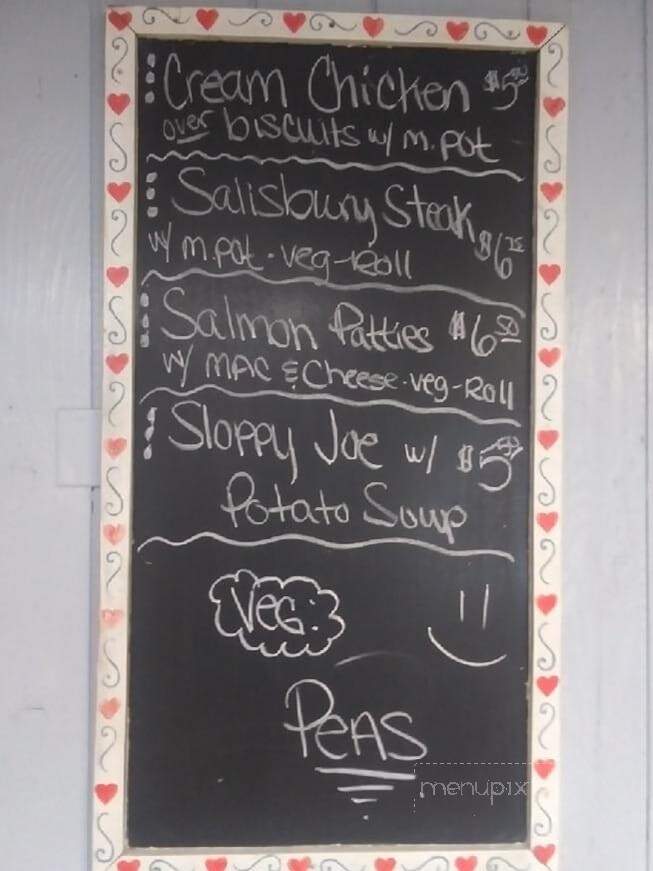 Cream Chicken
over biscuits w/ m.pot
Salisbury Steak
w/ m.pot. veg-Roll
Salmon Patties $6.50
w/ MAC & Cheese. veg-Roll
Sloppy Joe w/
Potato Soup
Veg:
PEAS
menupix